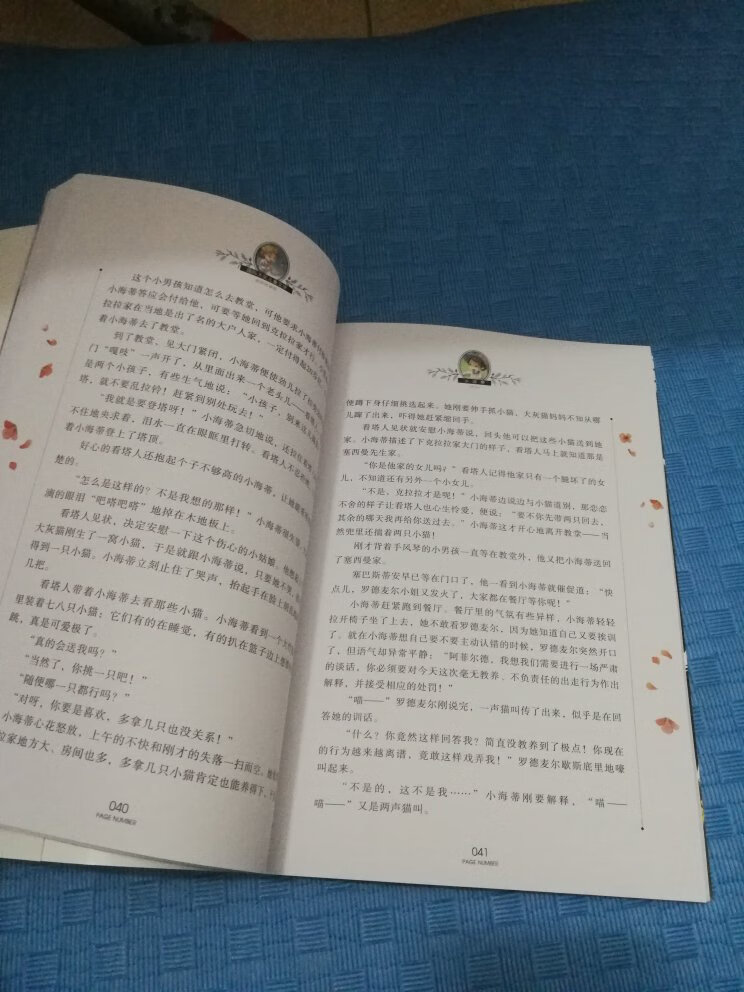 这个小男孩知道怎么去教堂，可他要求小海蒂
小海蒂答应会付给他，可要等她回到克拉拉家才行
拉拉家在当地是出了名的大户人家，一定付得起
看小海蒂去了教堂。
到了教堂，见大门紧闭，小海蒂便使劲儿拉了拉
门“嘎吱”一声开了，从里面出来一个老头儿——看
是两个小孩子，有些生气地说：“小孩子，别来这儿
塔，就不要乱拉铃！赶紧到别处玩去！”
“我就是要登塔呀！”小海蒂急切地说，还拉住看
不住地央求看，泪水一直在眼眶里打转。看塔人不忍
着小海蒂登上了塔顶。
好心的看塔人还抱起个子不够高的小海蒂，让她能
楚的。
“怎么是这样的？不是我想的那样！”小海蒂很失
滴的眼泪“吧嗒吧嗒”地掉在木地板上。
看塔人见状，决定安慰一下这个伤心的小姑娘。他想起
大灰猫刚生了一窝小猫，于是就跟小海蒂说，只要她不哭，
得到一只小猫。小海蒂立刻止住了哭声，抬起手在脸上
几把。
看塔人带着小海蒂去看那些小猫。小海蒂看到一个大
里装着七八只小猫：它们有的在睡觉，有的扒在篮子边上想
跳，真是可爱极了。
“真的会送我吗？”
“当然了，你挑一只吧！”
“随便哪一只都行吗？”
“对呀，你要是喜欢，多拿几只也没关系！”
小海蒂心花怒放，上午的不快和刚才的失落一扫而空。
拉家地方大、房间也多，多拿几只小猫肯定也能养得下，
040
PAGE NUMBER
便蹲下身仔细挑选起来。她刚要伸手抓小猫，大灰猫妈妈不知从哪
儿蹿了出来，吓得她赶紧缩回手。
看塔人见状就安慰小海蒂说，回头他可以把这些小猫送到她
家。小海蒂描述了下克拉拉家大门的样子，看塔人马上就知道那是
塞西曼先生家。
“你是他家的女儿吗？”看塔人记得他家只有一个腿坏了的女
儿，不知道还有另外一个小女儿。
“不是，克拉拉才是呢！”小海蒂边说边与小猫道别，那恋恋
不舍的样子让看塔人也心生怜爱，便说：“要不你先带两只回去，
其余的哪天我再给你送过去。”小海蒂这才开心地离开教堂——当
然兜里还揣着两只小猫！
刚才背着手风琴的小男孩一直等在教堂外，他又把小海蒂送回
了塞西曼家。
塞巴斯蒂安早已等在门口了，他一看到小海蒂就催促道：“快
点儿，罗德麦尔小姐又发火了，大家都在餐厅等你呢！”
小海蒂赶紧跑到餐厅。餐厅里的气氛有些异样，小海蒂轻轻
拉开椅子坐了上去，她不敢看罗德麦尔，因为她知道自己又要挨训
了。就在小海蒂想自己要不要主动认错的时候，罗德麦尔突然开口
了，但语气却异常平静：“阿菲尔德，我想我们需要进行一场严肃
的谈话，你必须要对今天这次毫无教养、不负责任的出走行为作出
解释，并接受相应的处罚！”
“喵——”罗德麦尔刚说完，一声猫叫传了出来，似乎是在回
答她的训话。
“什么？你竟然这样回答我？简直没教养到了极点！你现在
的行为越来越离谱，竟敢这样戏弄我！”罗德麦尔歇斯底里地嚎
叫起来。
“不是的，这不是我……”小海蒂刚要解释，“喵——
喵——”又是两声猫叫。
041
PAGE NUMBER